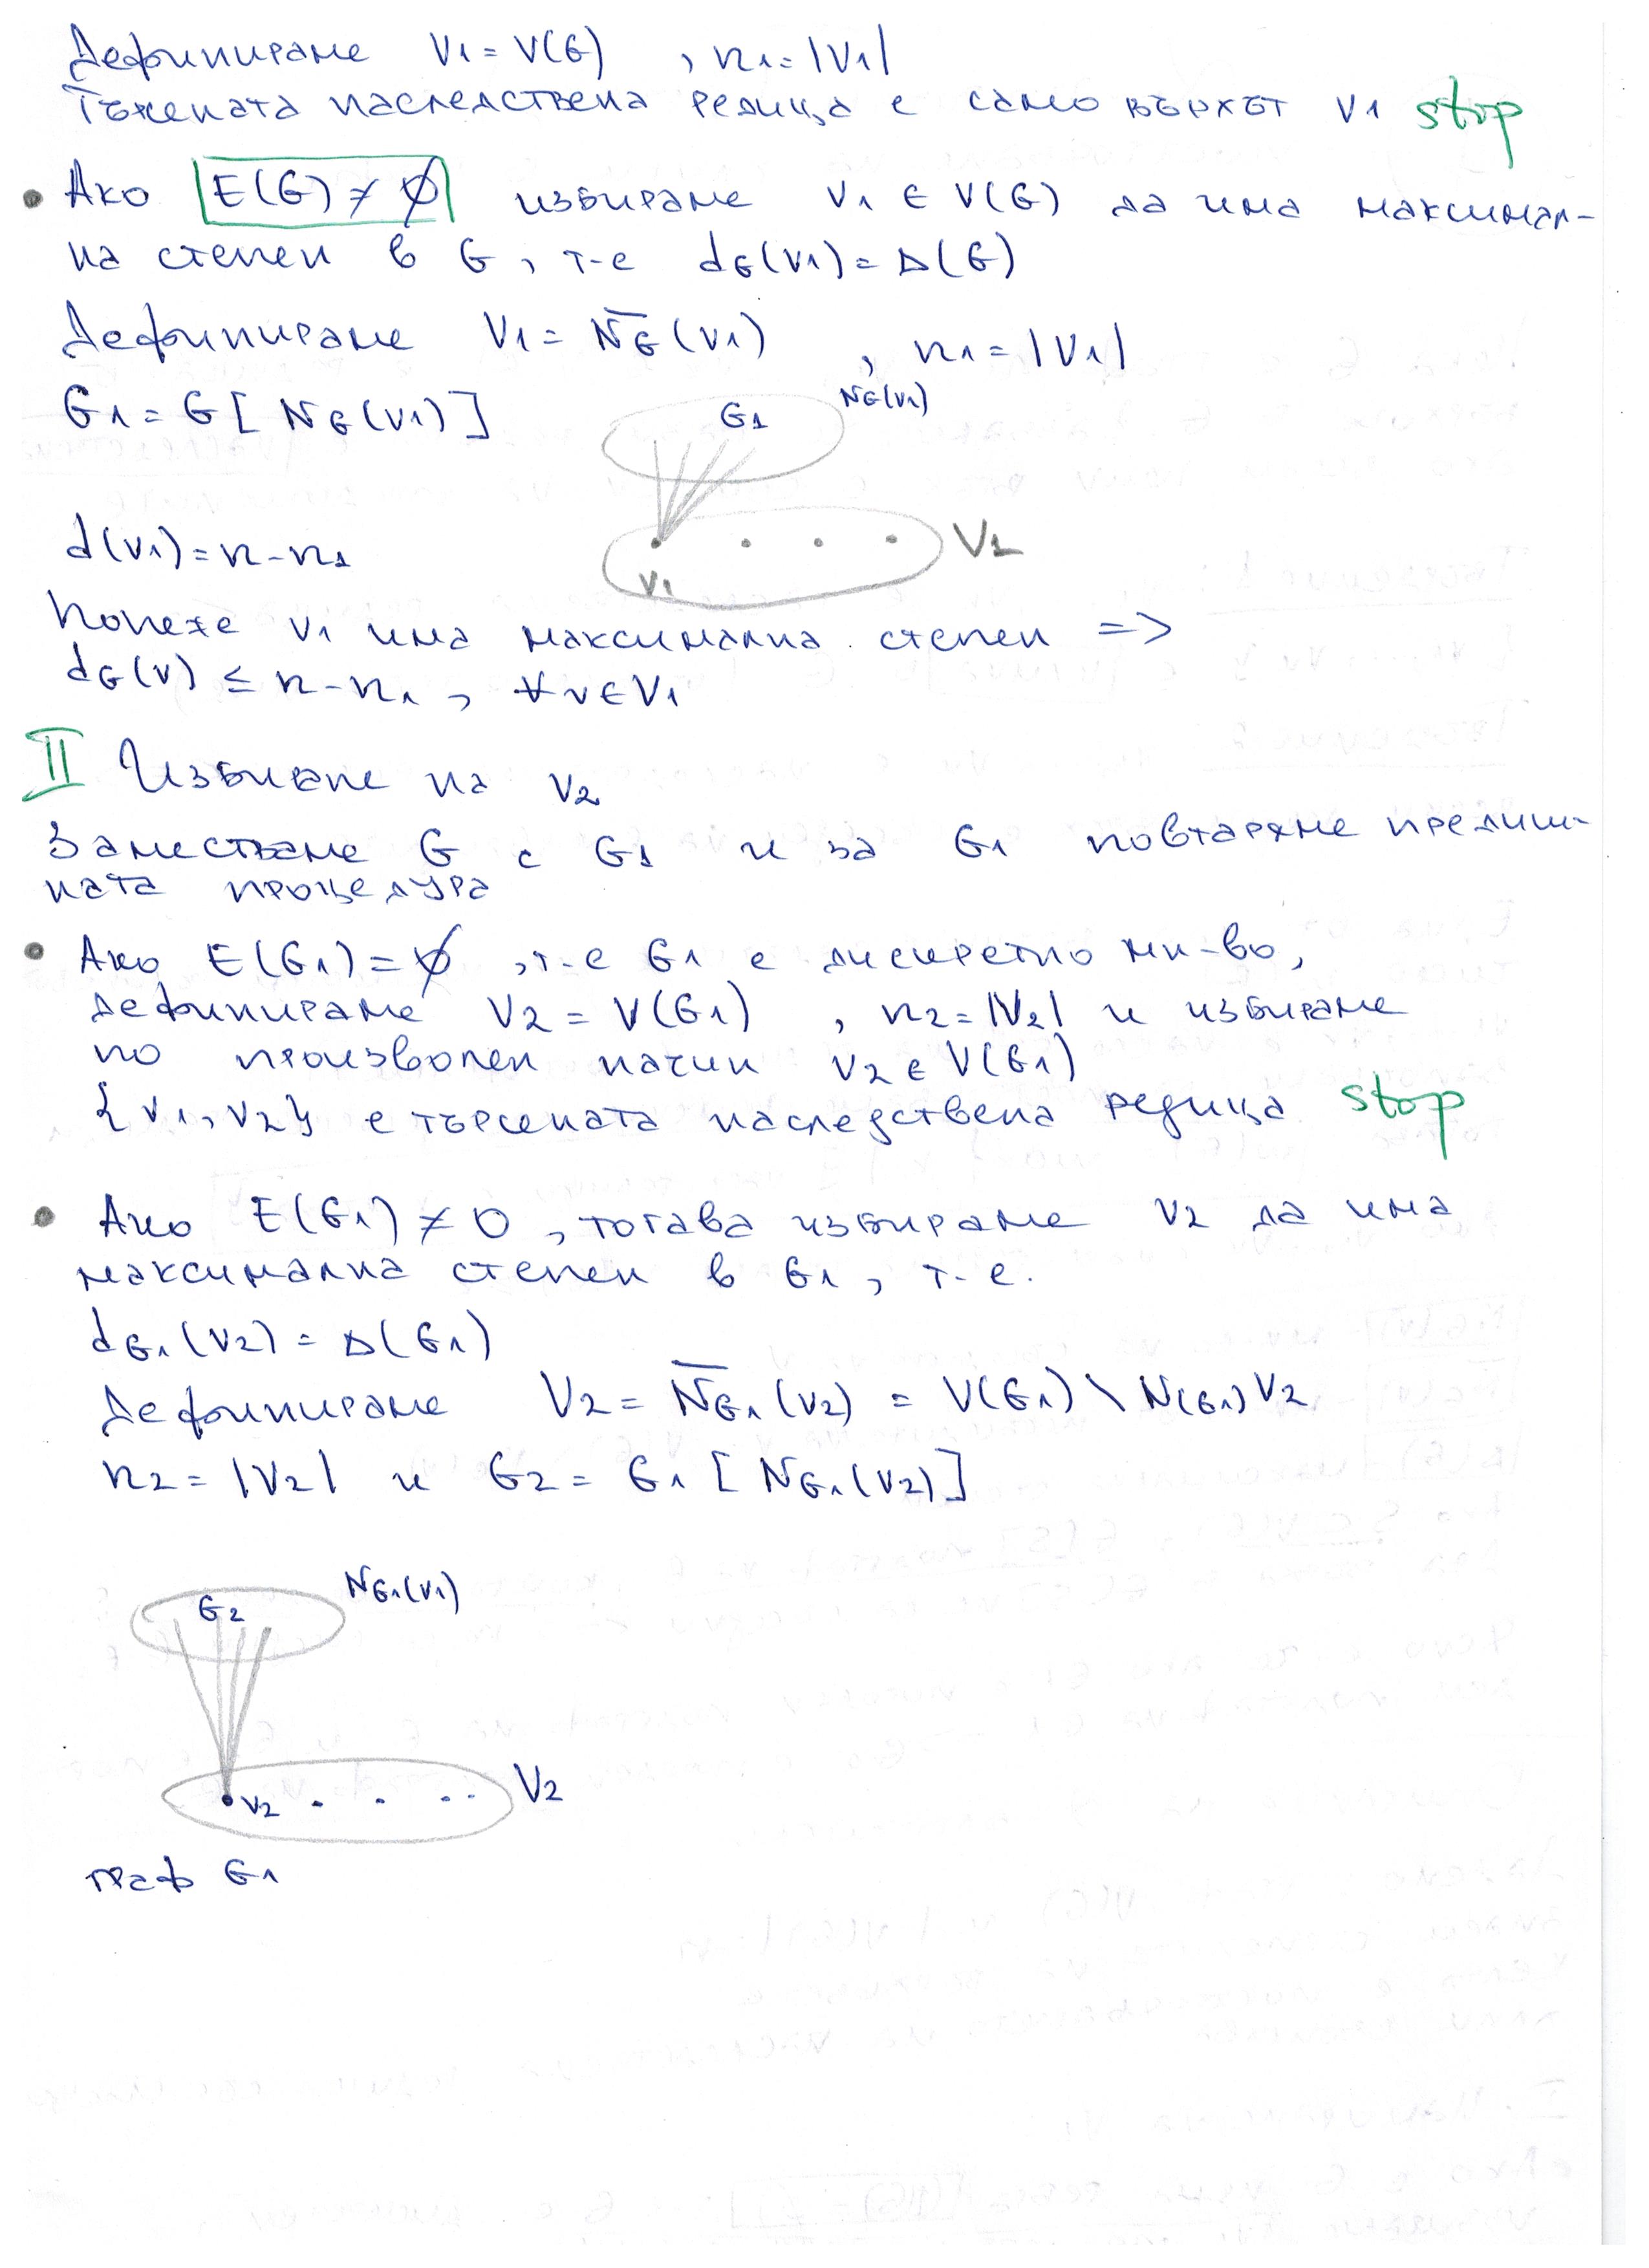 Дефинираме V1 = V(G) , n1 = |V1|
Търсената наследствена редица е само върхът v1 stop
• Ако E(G) ≠ ∅ избираме v1 ∈ V(G) да има максимал-
на степен в G, т-е dG(v1) = Δ(G)
Дефинираме V1 = N̅G(v1) , n1 = |V1|
G1 = G[NG(v1)]
G1 NG(v1)
d(v1) = n - n1
v1 V1
Понеже v1 има максимална степен =>
dG(v) ≤ n - n1 , ∀v∈V1
II Избиране на v2
Заместваме G с G1 и за G1 повтаряме предиш-
ната процедура
• Ако E(G1) = ∅ , т-е G1 е дискретно мн-во,
дефинираме V2 = V(G1) , n2 = |V2| и избираме
по произволен начин v2 ∈ V(G1)
{v1, v2} е търсената наследствена редица stop
• Ако E(G1) ≠ 0 , тогава избираме v2 да има
максимална степен в G1 , т-е.
dG1(v2) = Δ(G1)
Дефинираме V2 = N̅G1(v2) = V(G1) \ N(G1)V2
n2 = |V2| и G2 = G1[NG1(v2)]
G2 NG1(v1)
v2 V2
граф G1